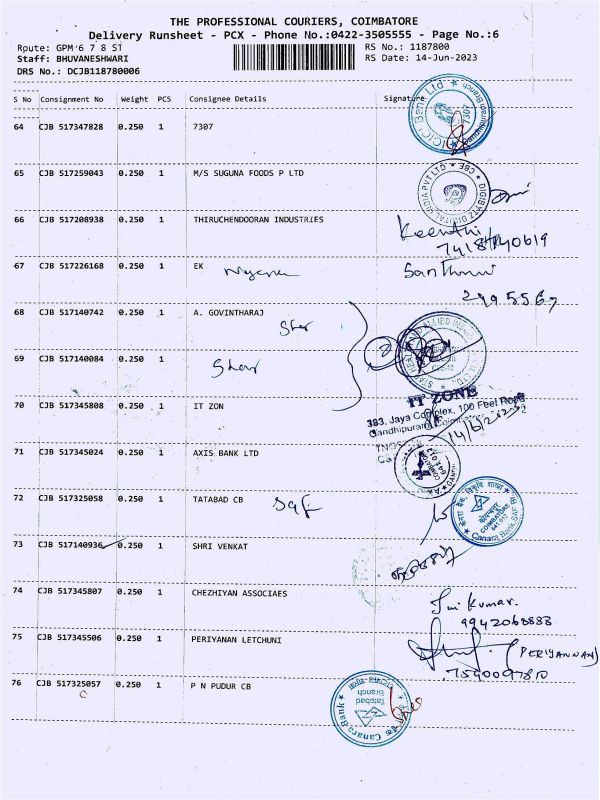 THE PROFESSIONAL COURIERS, COIMBATORE
Delivery Runsheet - PCX - Phone No.:0422-3505555 - Page No.:6
Route: GPM 6 7 8 ST RS No.: 1187800
Staff: BHUVANESHWARI RS Date: 14-Jun-2023
DRS No.: DCJB118780006
S No Consignment No Weight PCS Consignee Details Signature
64 CJB 517347828 0.250 1 7307
ICICI Bank Ltd 7307 Gandhipuram Branch
65 CJB 517259043 0.250 1 M/S SUGUNA FOODS P LTD
DIGIBYTZ DIGITAL MEDIA PVT LTD CBE
66 CJB 517208938 0.250 1 THIRUCHENDOORAN INDUSTRIES
Keerthi
67 CJB 517226168 0.250 1 EK
68 CJB 517140742 0.250 1 A. GOVINTHARAJ
69 CJB 517140084 0.250 1 SHRI
70 CJB 517345808 0.250 1 IT ZON
IT ZONE
383, Jaya Complex, 100 Feet Road
Gandhipuram
71 CJB 517345024 0.250 1 AXIS BANK LTD
72 CJB 517325058 0.250 1 TATABAD CB
केनरा बैंक Canara Bank COIMBATORE
73 CJB 517140936 0.250 1 SHRI VENKAT
74 CJB 517345807 0.250 1 CHEZHIYAN ASSOCIAES
Kumar.
9942068888
75 CJB 517345506 0.250 1 PERIYANAN LETCHUNI
(PERIYANNAN)
76 CJB 517325057 0.250 1 P N PUDUR CB
Canara Bank Tatabad Branch